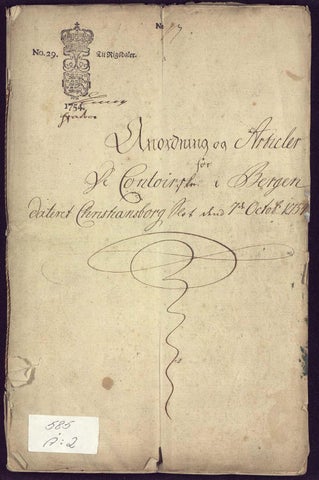 No. 29. Ti Rigsdaler.
No 27
1754.
Anordning og Articler
for
De Contoirske i Bergen
dateret Christiansborg Slot den 7de Octobr 1754
585
p: 2